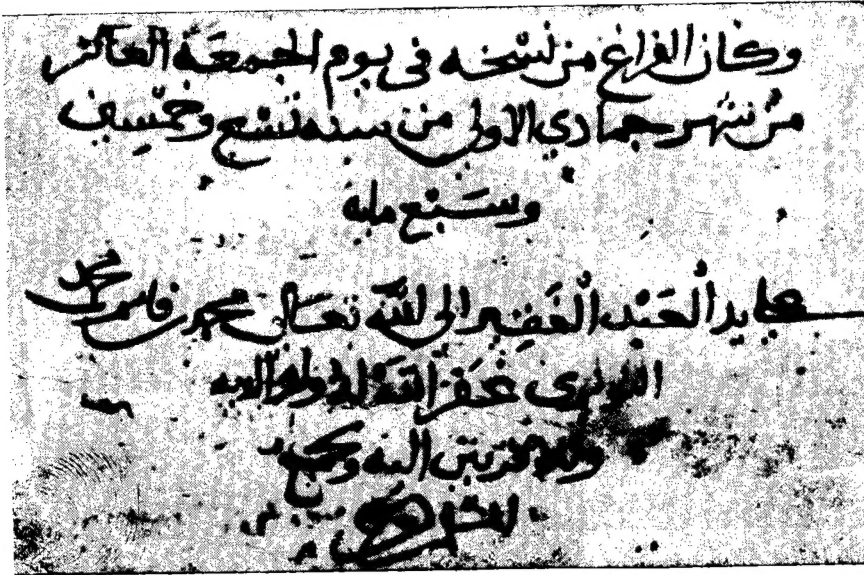 وكان الفراغ من نسخه في يوم الجمعة العاشر
من شهر جمادي الاولى من سنه تسع وخمسين
وسبع مايه
على يد العبد الفقير الى الله تعالى محمد بن قاسم بن محمد
غفر الله له ولوالديه
اليه وجميع